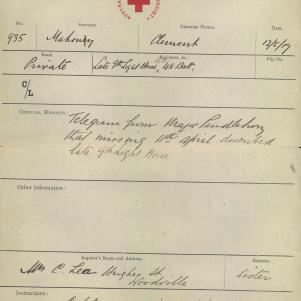 SOCIETY
No. Surname. Christian Names.
935 Mahoney Clement 12/5/17
Rank. Regiment, &c. File No.
Private Late 9th Light Horse, 48 Batt.
C/L
OFFICIAL REPORTS: Telegram from Major Pendlebury
that missing 11th April described
late 9th Light Horse
Other Information:
Inquirer's Name and Address. Relation.
Mrs C. Lea Hughes St. Sister
Woodville
Instructions: